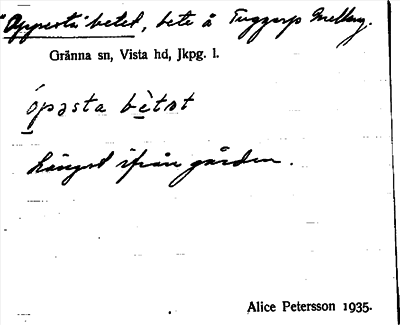 "Öppersta" betet, bete å Tuggarp Mellang.
Gränna sn, Vista hd, Jkpg. l.
öpəsta bètət
längst ifrån gården.
Alice Petersson 1935.